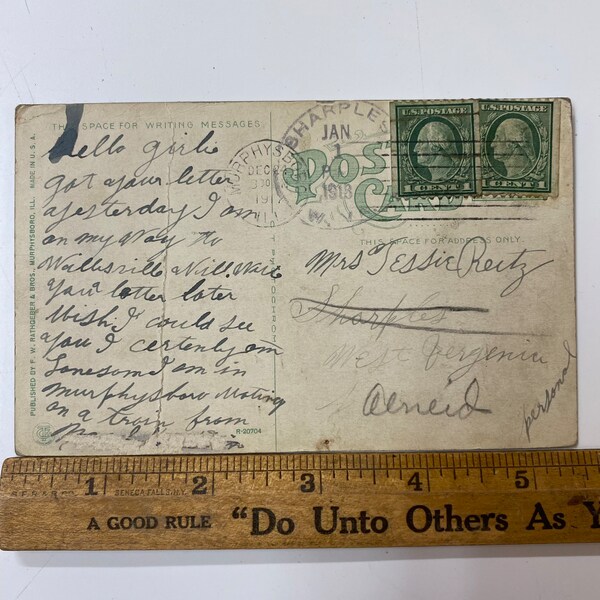 THIS SPACE FOR WRITING MESSAGES.
Hello girlie
got your letter
yesterday I am
on my way to
Wallsville Will Write
you a letter later
Wish I could see
you I certenly am
Lonesom I am in
murphysboro Wating
on a train from
PUBLISHED BY F. W. RATHGEBER & BROS., MURPHYSBORO, ILL. MADE IN U. S. A.
R-20704
MURPHYSBORO
DEC
SHARPLES
JAN
1
1918
W. VA.
POST CARD
U.S. POSTAGE
1 CENTS 1
U.S. POSTAGE
1 CENTS 1
THIS SPACE FOR ADDRESS ONLY.
Mrs Tessie Reitz
Sharples
West Vergenia
personal
1 2 3 4 5
SENECA FALLS, N.Y.
A GOOD RULE "Do Unto Others As Y